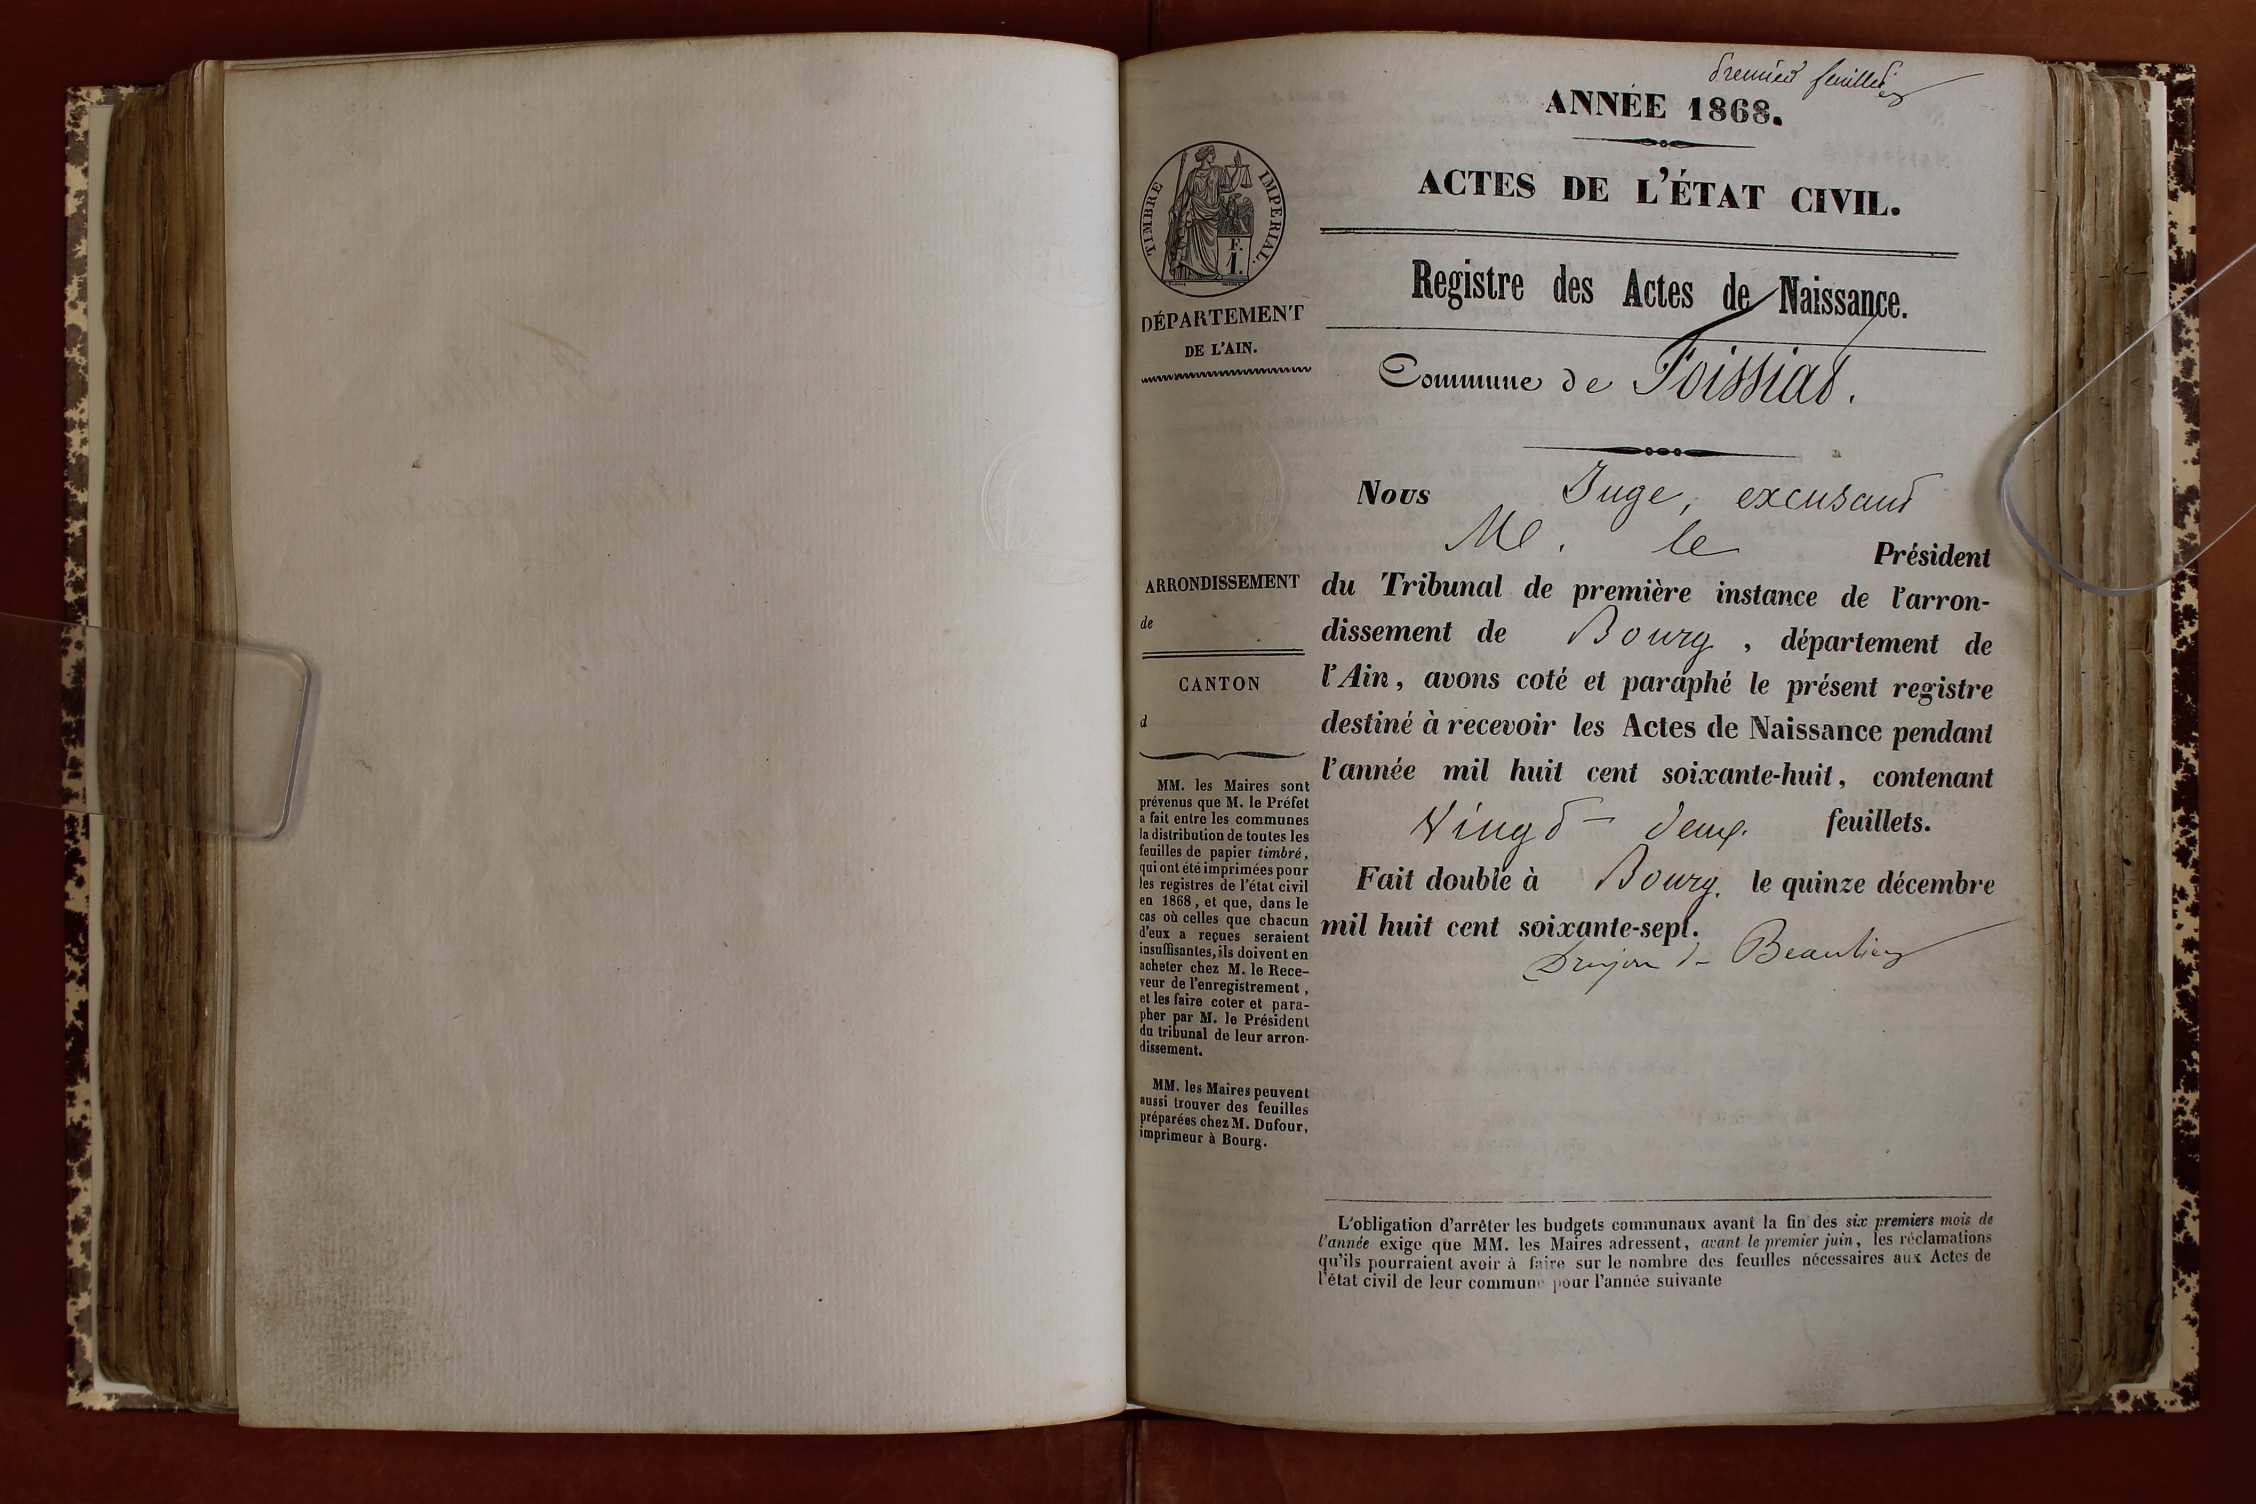 premier feuillet
ANNÉE 1868.
ACTES DE L'ÉTAT CIVIL.
TIMBRE IMPERIAL.
F.
1.
DÉPARTEMENT
DE L'AIN.
Registre des Actes de Naissance.
Commune de Foissiat.
Nous Juge, excusant
M. le Président
du Tribunal de première instance de l'arron-
dissement de Bourg, département de
l'Ain, avons coté et paraphé le présent registre
destiné à recevoir les Actes de Naissance pendant
l'année mil huit cent soixante-huit, contenant
vingt-deux feuillets.
Fait double à Bourg, le quinze décembre
mil huit cent soixante-sept.
Drujon de Beaulieu
ARRONDISSEMENT
de
CANTON
d
MM. les Maires sont
prévenus que M. le Préfet
a fait entre les communes
la distribution de toutes les
feuilles de papier timbré,
qui ont été imprimées pour
les registres de l'état civil
en 1868, et que, dans le
cas où celles que chacun
d'eux a reçues seraient
insuffisantes, ils doivent en
acheter chez M. le Rece-
veur de l'enregistrement,
et les faire coter et para-
pher par M. le Président
du tribunal de leur arron-
dissement.
MM. les Maires peuvent
aussi trouver des feuilles
préparées chez M. Dufour,
imprimeur à Bourg.
L'obligation d'arrêter les budgets communaux avant la fin des six premiers mois de
l'année exige que MM. les Maires adressent, avant le premier juin, les réclamations
qu'ils pourraient avoir à faire sur le nombre des feuilles nécessaires aux Actes de
l'état civil de leur commune pour l'année suivante